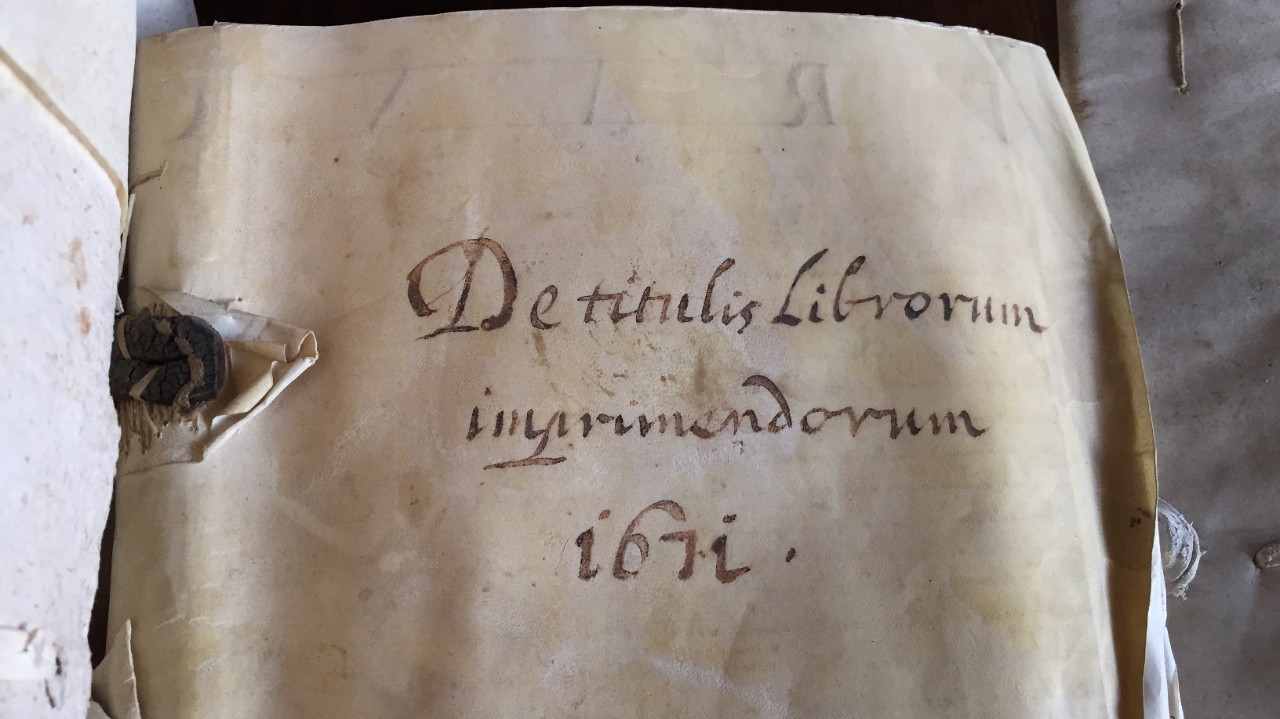 De titulis Librorum
imprimendorum
1671.